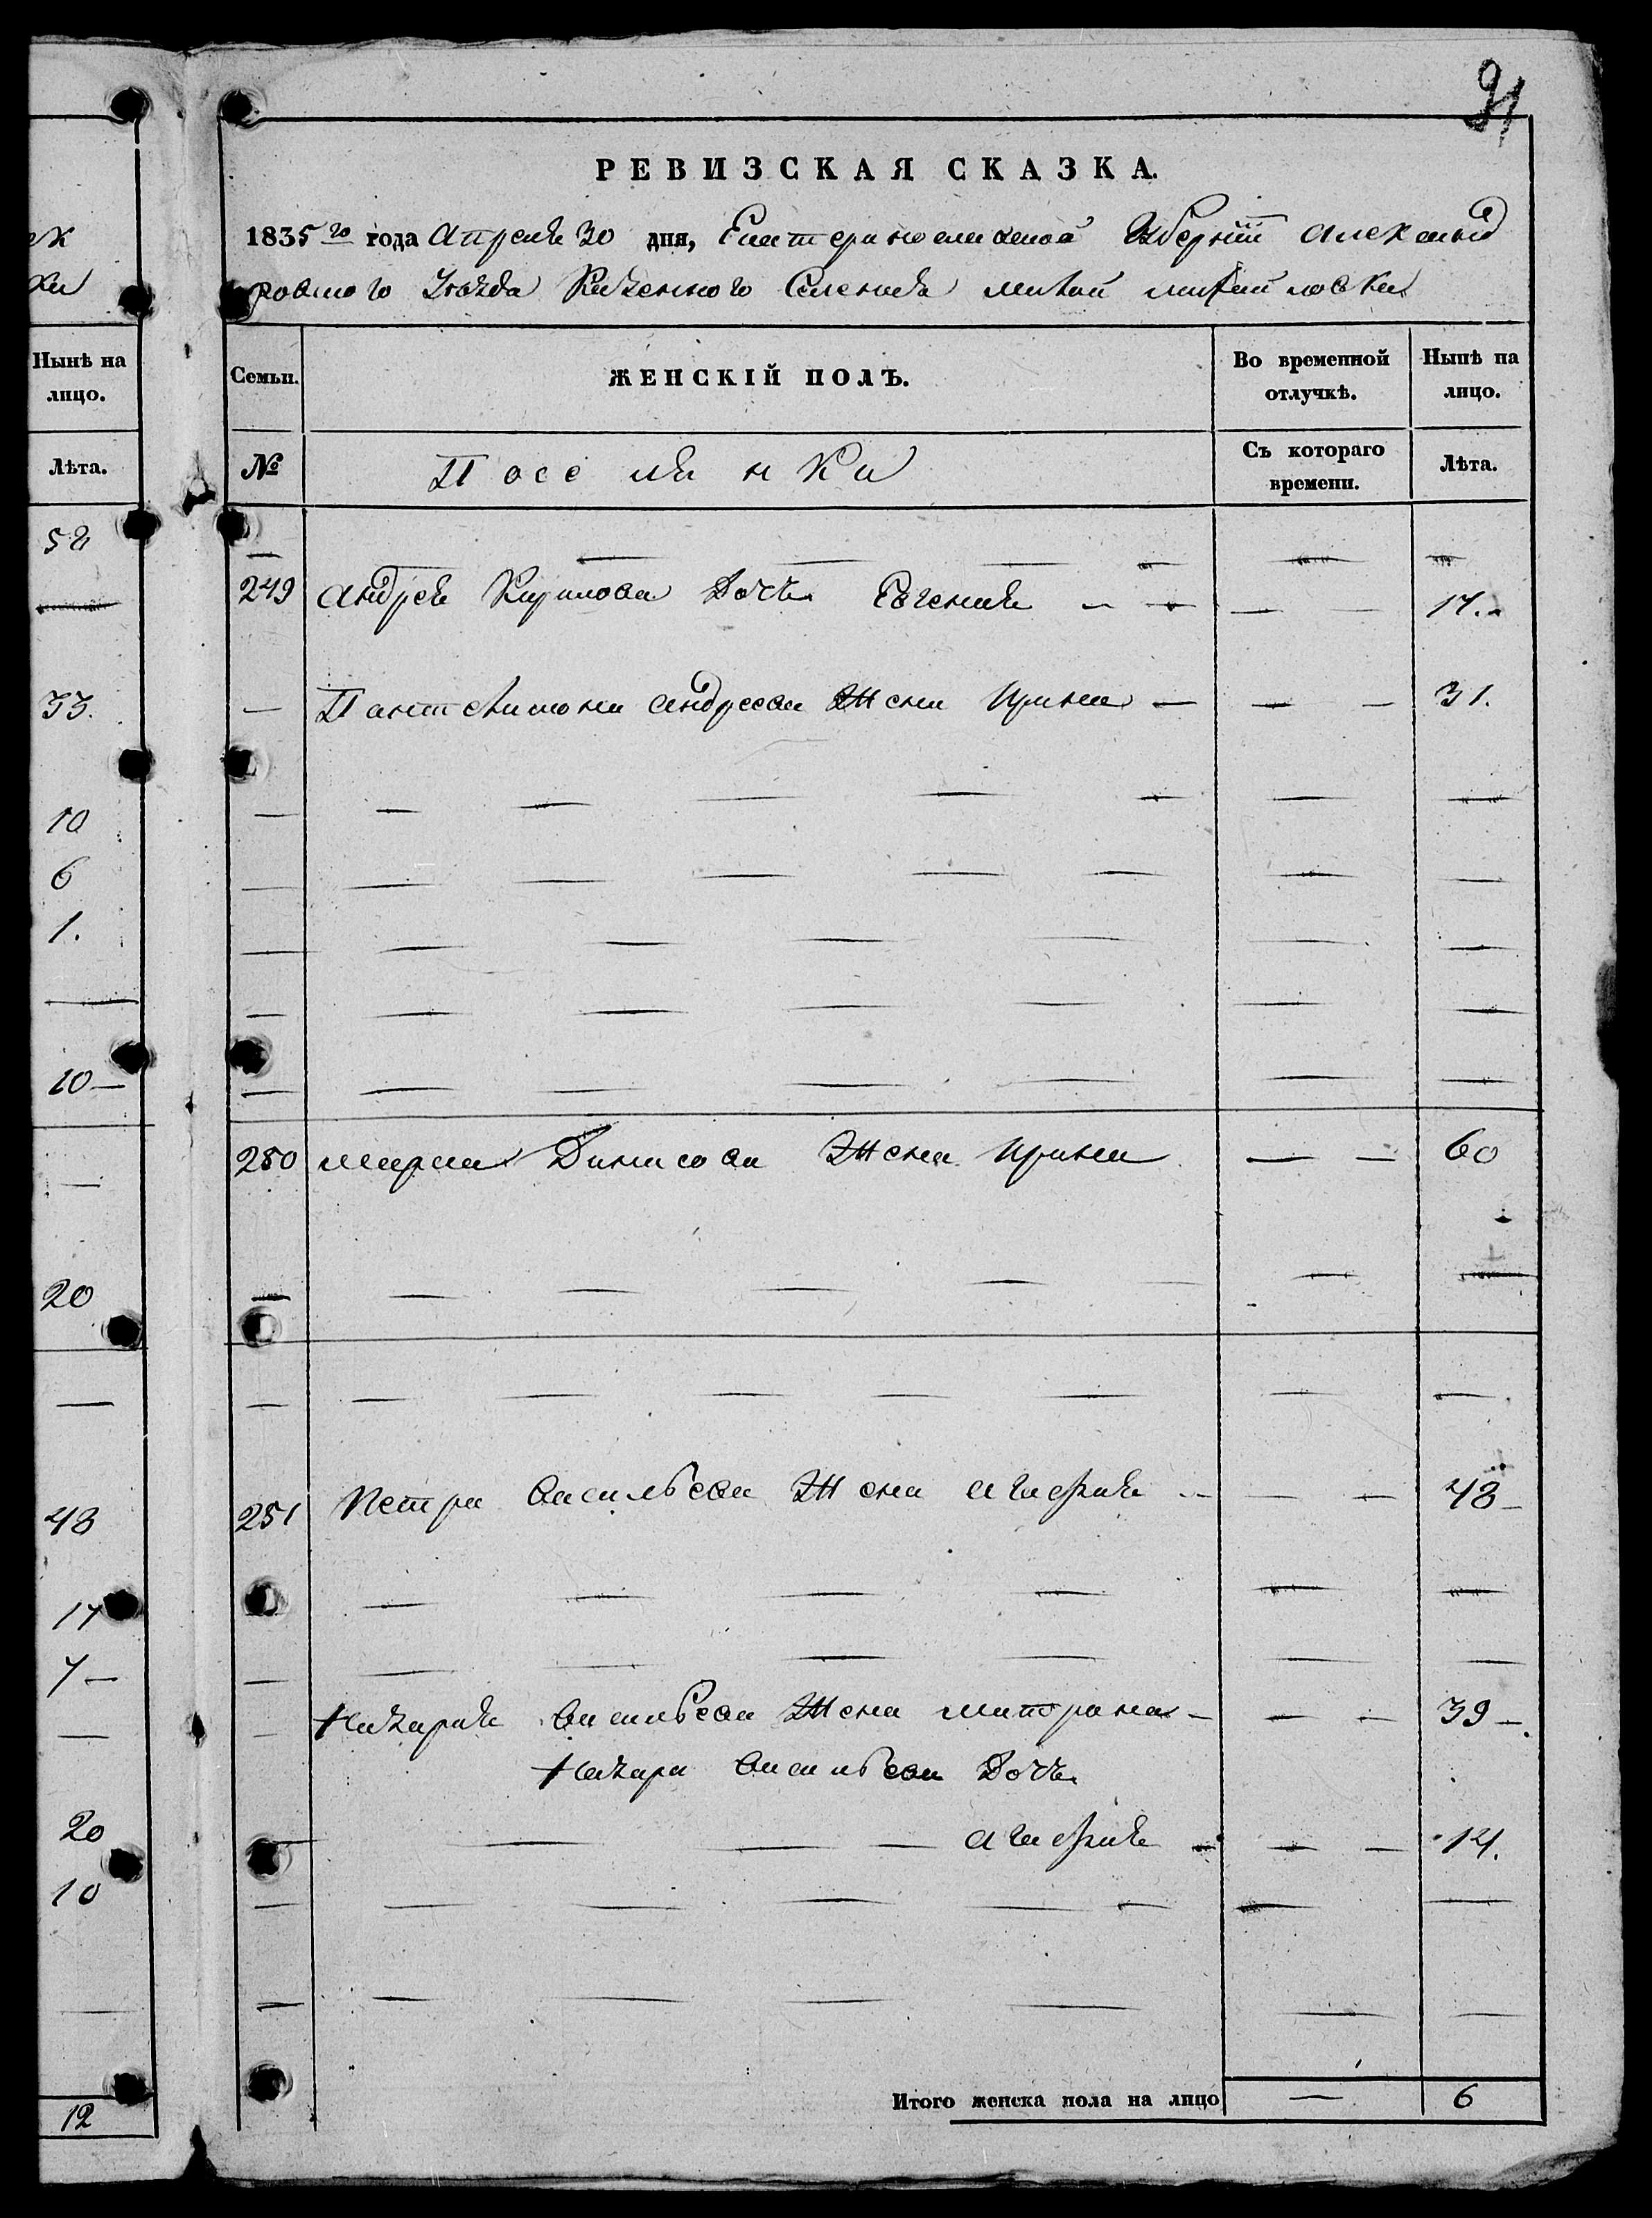 91
РЕВИЗСКАЯ СКАЗКА.
1835го года Апреля 30 дня, Екатеринославской Губернiи Александ
ровского Уезда Казенного Селения малой михайловки
ек
ки
Нынѣ на лицо.
Лѣта.
Семьи.
ЖЕНСКІЙ ПОЛЪ.
Во временной отлучкѣ.
Нынѣ на лицо.
№
Поселянки
Съ котораго времени.
Лѣта.
58
249 Андрея Кирилова Дочь Евгения — — — — 17.
33.
— Пантелимона Андреева Жена Ирина — — — 31.
10
6
1.
10 —
250 Марка Динисова Жена Ирина — — 60
20
48
251 Петра Васильева Жена Агафия — — — 48 —
17
7 —
— Назария Васильева Жена Матрона — — — 39 —
Назара Васильева Дочь
20
— — — Агафия — — — 14.
10
Итого женска пола на лицо — 6
12